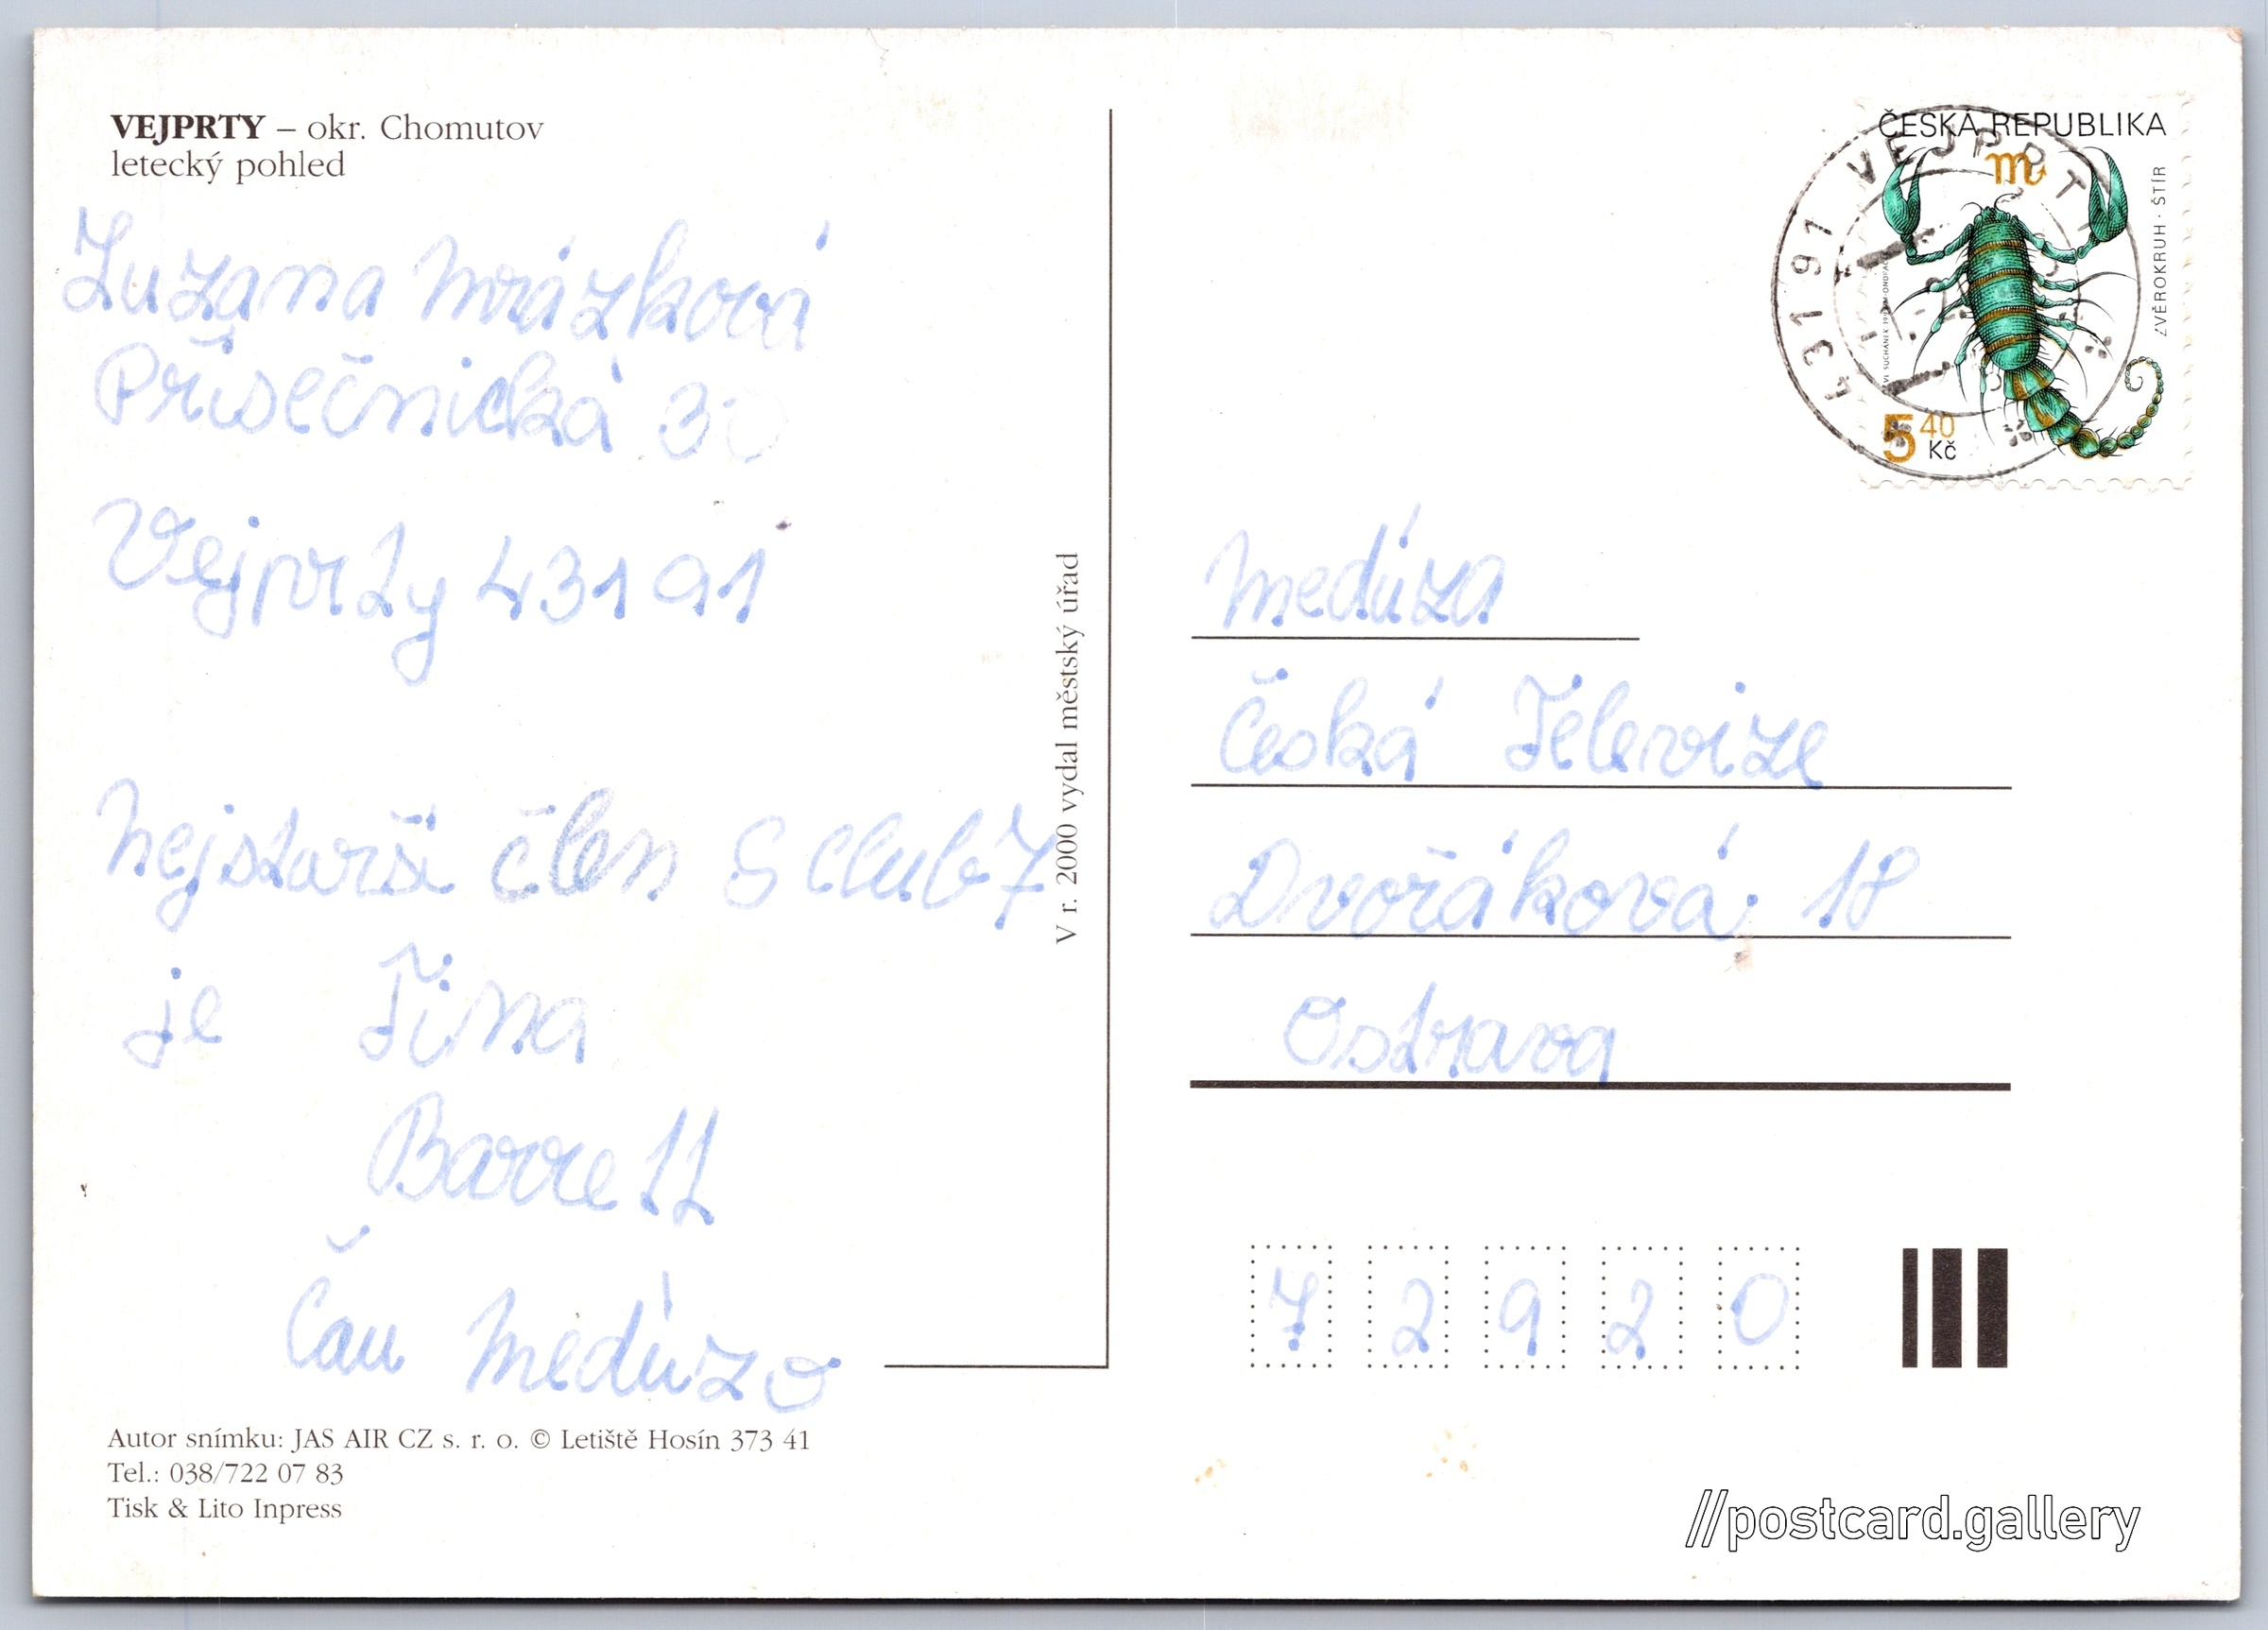 VEJPRTY – okr. Chomutov
letecký pohled
Zuzana Mrázková
Přísečnická 30
Vejprty 431 91
Nejstarší člen S Club 7
je Tina
Barrett
Čau Medúzo
Autor snímku: JAS AIR CZ s. r. o. © Letiště Hosín 373 41
Tel.: 038/722 07 83
Tisk & Lito Inpress
V r. 2000 vydal městský úřad
ČESKÁ REPUBLIKA
ZVĚROKRUH · ŠTÍR
5 40 Kč
431 91 VEJPRTY
Medúza
Česká Televize
Dvořáková 18
Ostrava
7 2 9 2 0
//postcard.gallery